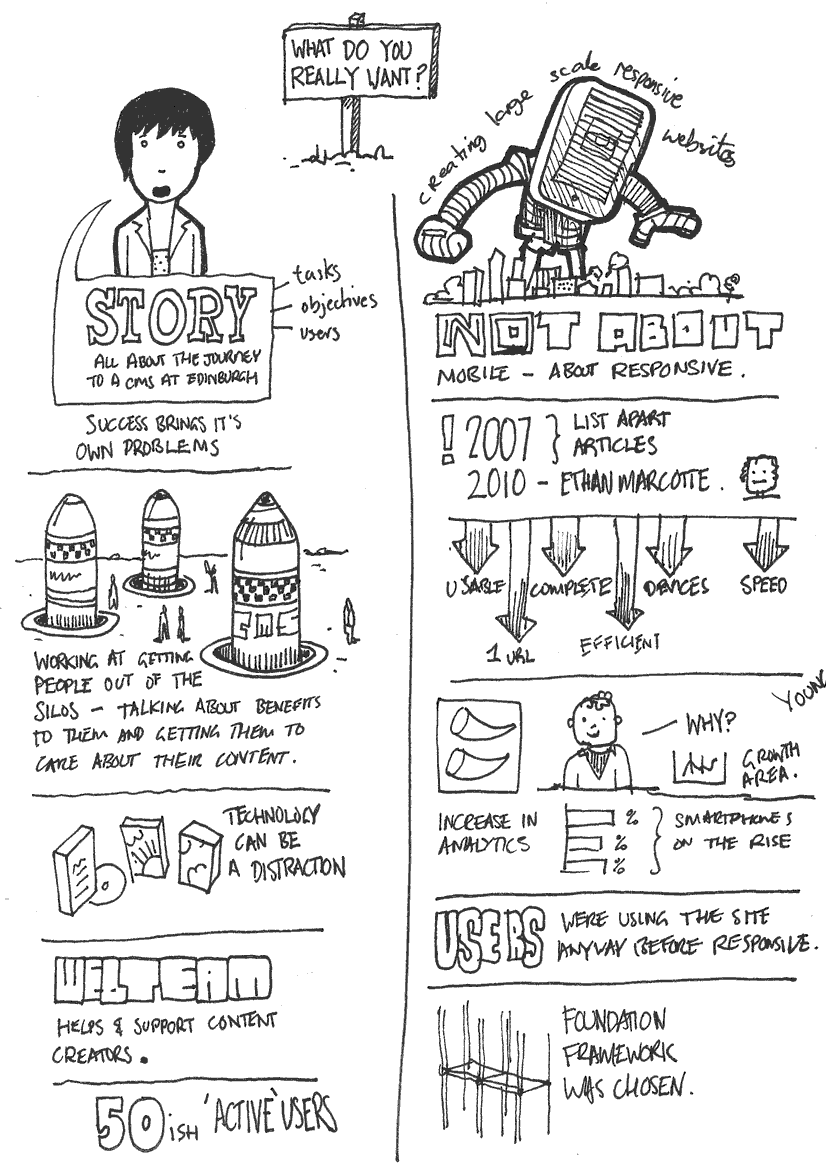 WHAT DO YOU
REALLY WANT?
STORY
ALL ABOUT THE JOURNEY
TO A CMS AT EDINBURGH
tasks
objectives
users
SUCCESS BRINGS IT'S
OWN PROBLEMS
WORKING AT GETTING
PEOPLE OUT OF THE
SILOS - TALKING ABOUT BENEFITS
TO THEM AND GETTING THEM TO
CARE ABOUT THEIR CONTENT.
TECHNOLOGY
CAN BE
A DISTRACTION
HELPS & SUPPORT CONTENT
CREATORS.
50ISH 'ACTIVE' USERS
creating large scale responsive websites
NOT ABOUT
MOBILE - ABOUT RESPONSIVE.
! 2007 } LIST APART
ARTICLES
2010 - ETHAN MARCOTTE.
USABLE COMPLETE DEVICES SPEED
1 URL EFFICIENT
YOUNG
WHY?
GROWTH
AREA.
INCREASE IN
ANALYTICS
%
%
%
SMARTPHONES
ON THE RISE
USERS WERE USING THE SITE
ANYWAY BEFORE RESPONSIVE.
FOUNDATION
FRAMEWORK
WAS CHOSEN.